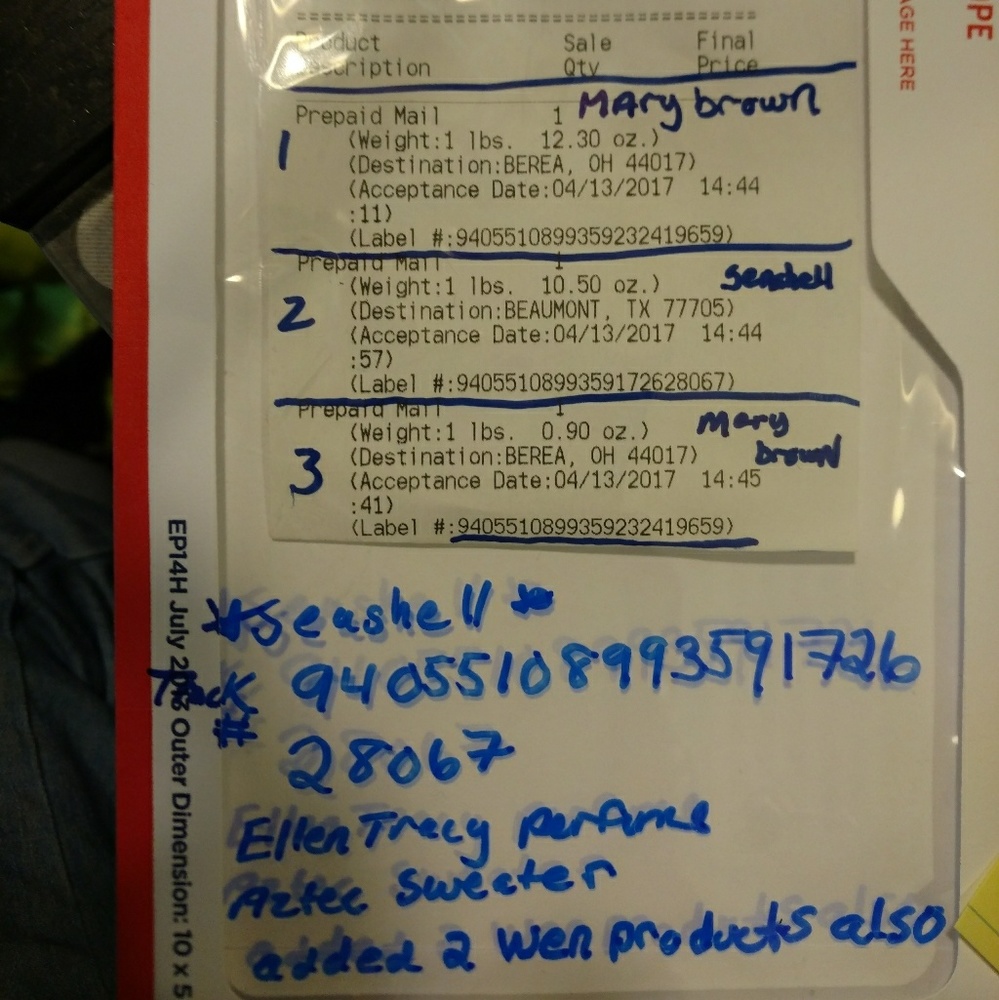 ================================
Product Sale Final
Description Qty Price
MARy brown
Prepaid Mail 1
1
(Weight:1 lbs. 12.30 oz.)
(Destination:BEREA, OH 44017)
(Acceptance Date:04/13/2017 14:44
:11)
(Label #:9405510899359232419659)
Prepaid Mail 1
seashell
2
(Weight:1 lbs. 10.50 oz.)
(Destination:BEAUMONT, TX 77705)
(Acceptance Date:04/13/2017 14:44
:57)
(Label #:9405510899359172628067)
Prepaid Mail 1
Mary
brown
3
(Weight:1 lbs. 0.90 oz.)
(Destination:BEREA, OH 44017)
(Acceptance Date:04/13/2017 14:45
:41)
(Label #:9405510899359232419659)
*Seashell*
Track 94055108993591726
# 28067
Ellen Tracy perfume
Aztec Sweater
added 2 wen products also
EP14H July Outer Dimension: 10 x 5
AGE HERE
OPE